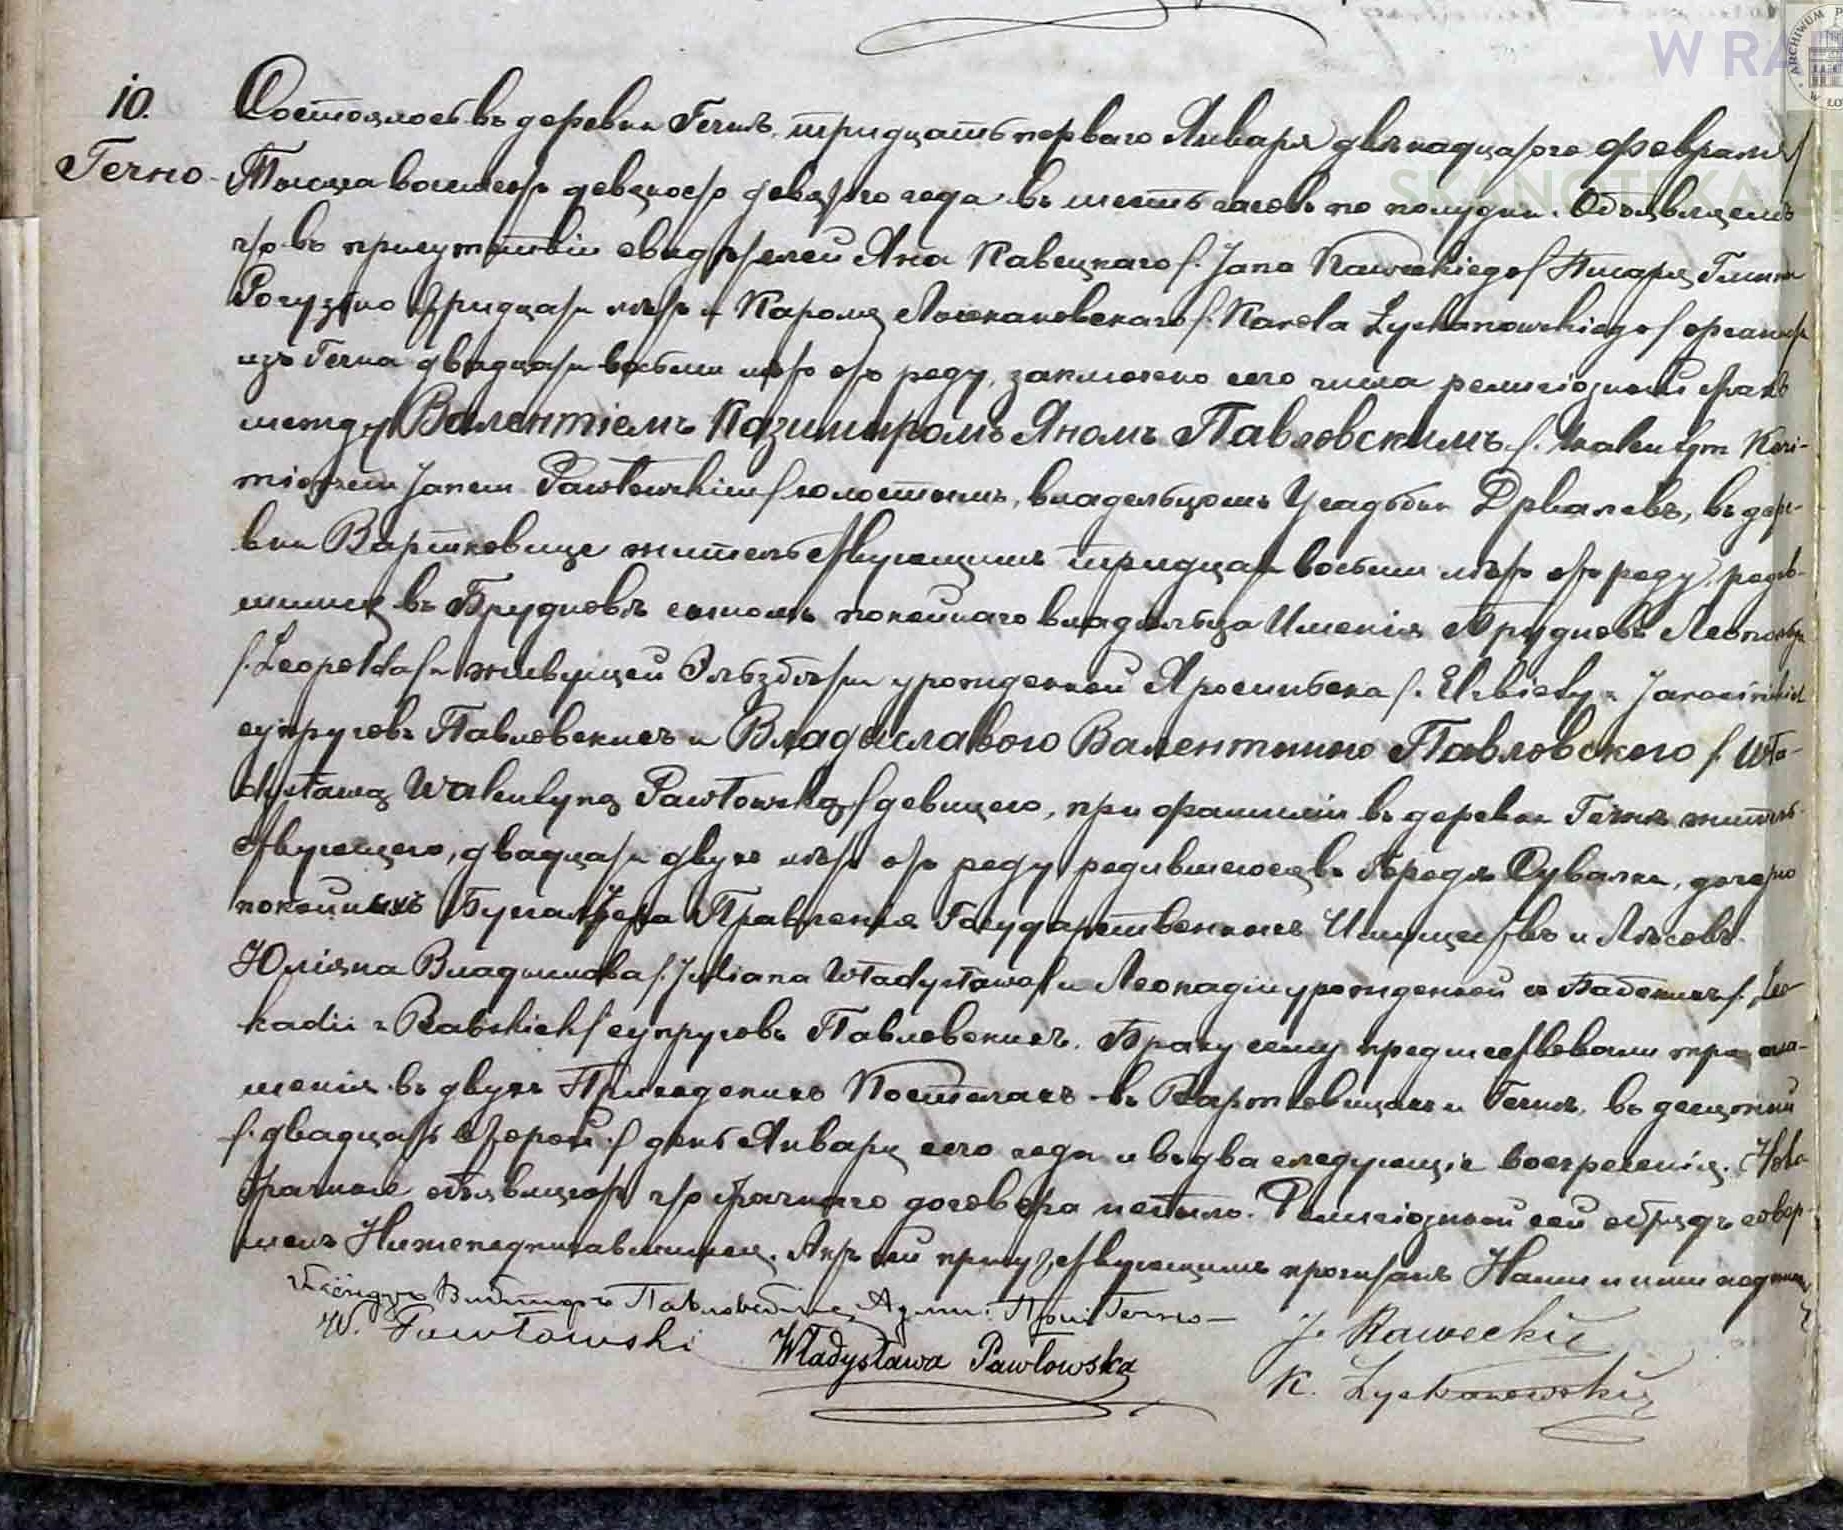 W RA
ARCHIWUM P
W ŁO
SKANOTEKA
10.
Гечно
Состоялось въ деревни Гечнѣ, тридцать перваго Января /двѣнадцатого Февраля/
Тысяча восемсотъ девяносто девятого года въ шесть часовъ по полудни. Объявляемъ
что въ присутствіи свидѣтелей Яна Кавецкаго /: Jana Kaweckiego / Писаря Гмины
Рогузно тридцати лѣтъ и Кароля Лычкановскаго /: Karola Łyczkanowskiego /
изъ Гечна двадцати восьми лѣтъ отъ роду, заключено сего числа религіозный бракъ
между Валентіемъ Казимиромъ Яномъ Павловскимъ /: Walentym Kazi-
mierzem Janem Pawłowskim / холостымъ, владѣльцомъ Усадьбы въ дере-
вни Вартковице жительствующимъ тридцати восьми лѣтъ отъ роду, родив-
шимся въ Брудновѣ сыномъ покойнаго владѣльца Именія Брудновъ Леопольда
/: Leopolda / и живущей Эльзбѣты урожденной /: Elżbiety z Jarocińskich
супруговъ Павловскихъ и Владиславою Валентиною Павловскою /: Wła-
dysławą Walentyną Pawłowską / девицею, при фамиліи въ деревни Гечнѣ житель-
ствующею, двадцати двухъ лѣтъ отъ роду родившеюся въ Городѣ Сувалки, дочерю
покойныхъ Бухгалтера Правленія Государственныхъ Имуществъ и Лѣсовъ
Юліяна Владислава /: Juliana Władysława / и Леокадіи урожденной съ Бабскихъ /: Leo-
kadii z Babskich / супруговъ Павловскихъ. Браку сему предшествовали три огла-
шенія въ двухъ Приходскихъ Костелахъ въ Вартковицахъ и Гечнѣ, въ десятый
/: двадцать второй :/ день Января сего года и въ два следующіе воскресенія. Ново-
брачные объявляютъ что брачнаго договора небыло. Религіозный сей обрядъ совер-
шенъ Нижеподписавшимся. Актъ сей присутствующимъ прочитанъ Нами и ими подписанъ
Ксёндзъ Павловскій Адми. Прих. Гечно
W. Pawłowski
Władysława Pawłowska
J. Kawecki
K. Łyczkanowski